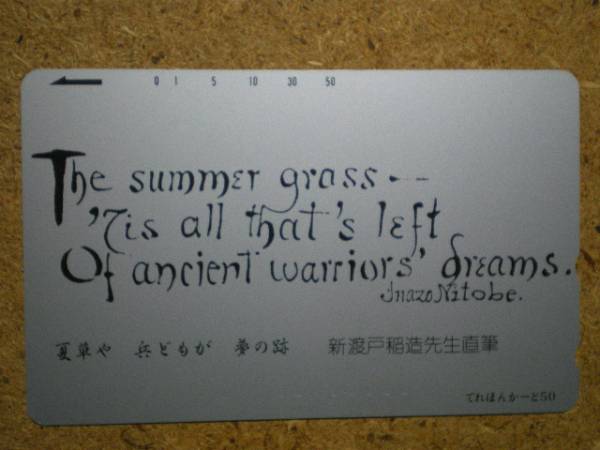 0 1 5 10 30 50
The summer grass - --
'Tis all that's left
Of ancient warriors' dreams.
Inazo Nitobe.
夏草や 兵どもが 夢の跡 新渡戸稲造先生直筆
てれほんかーど50